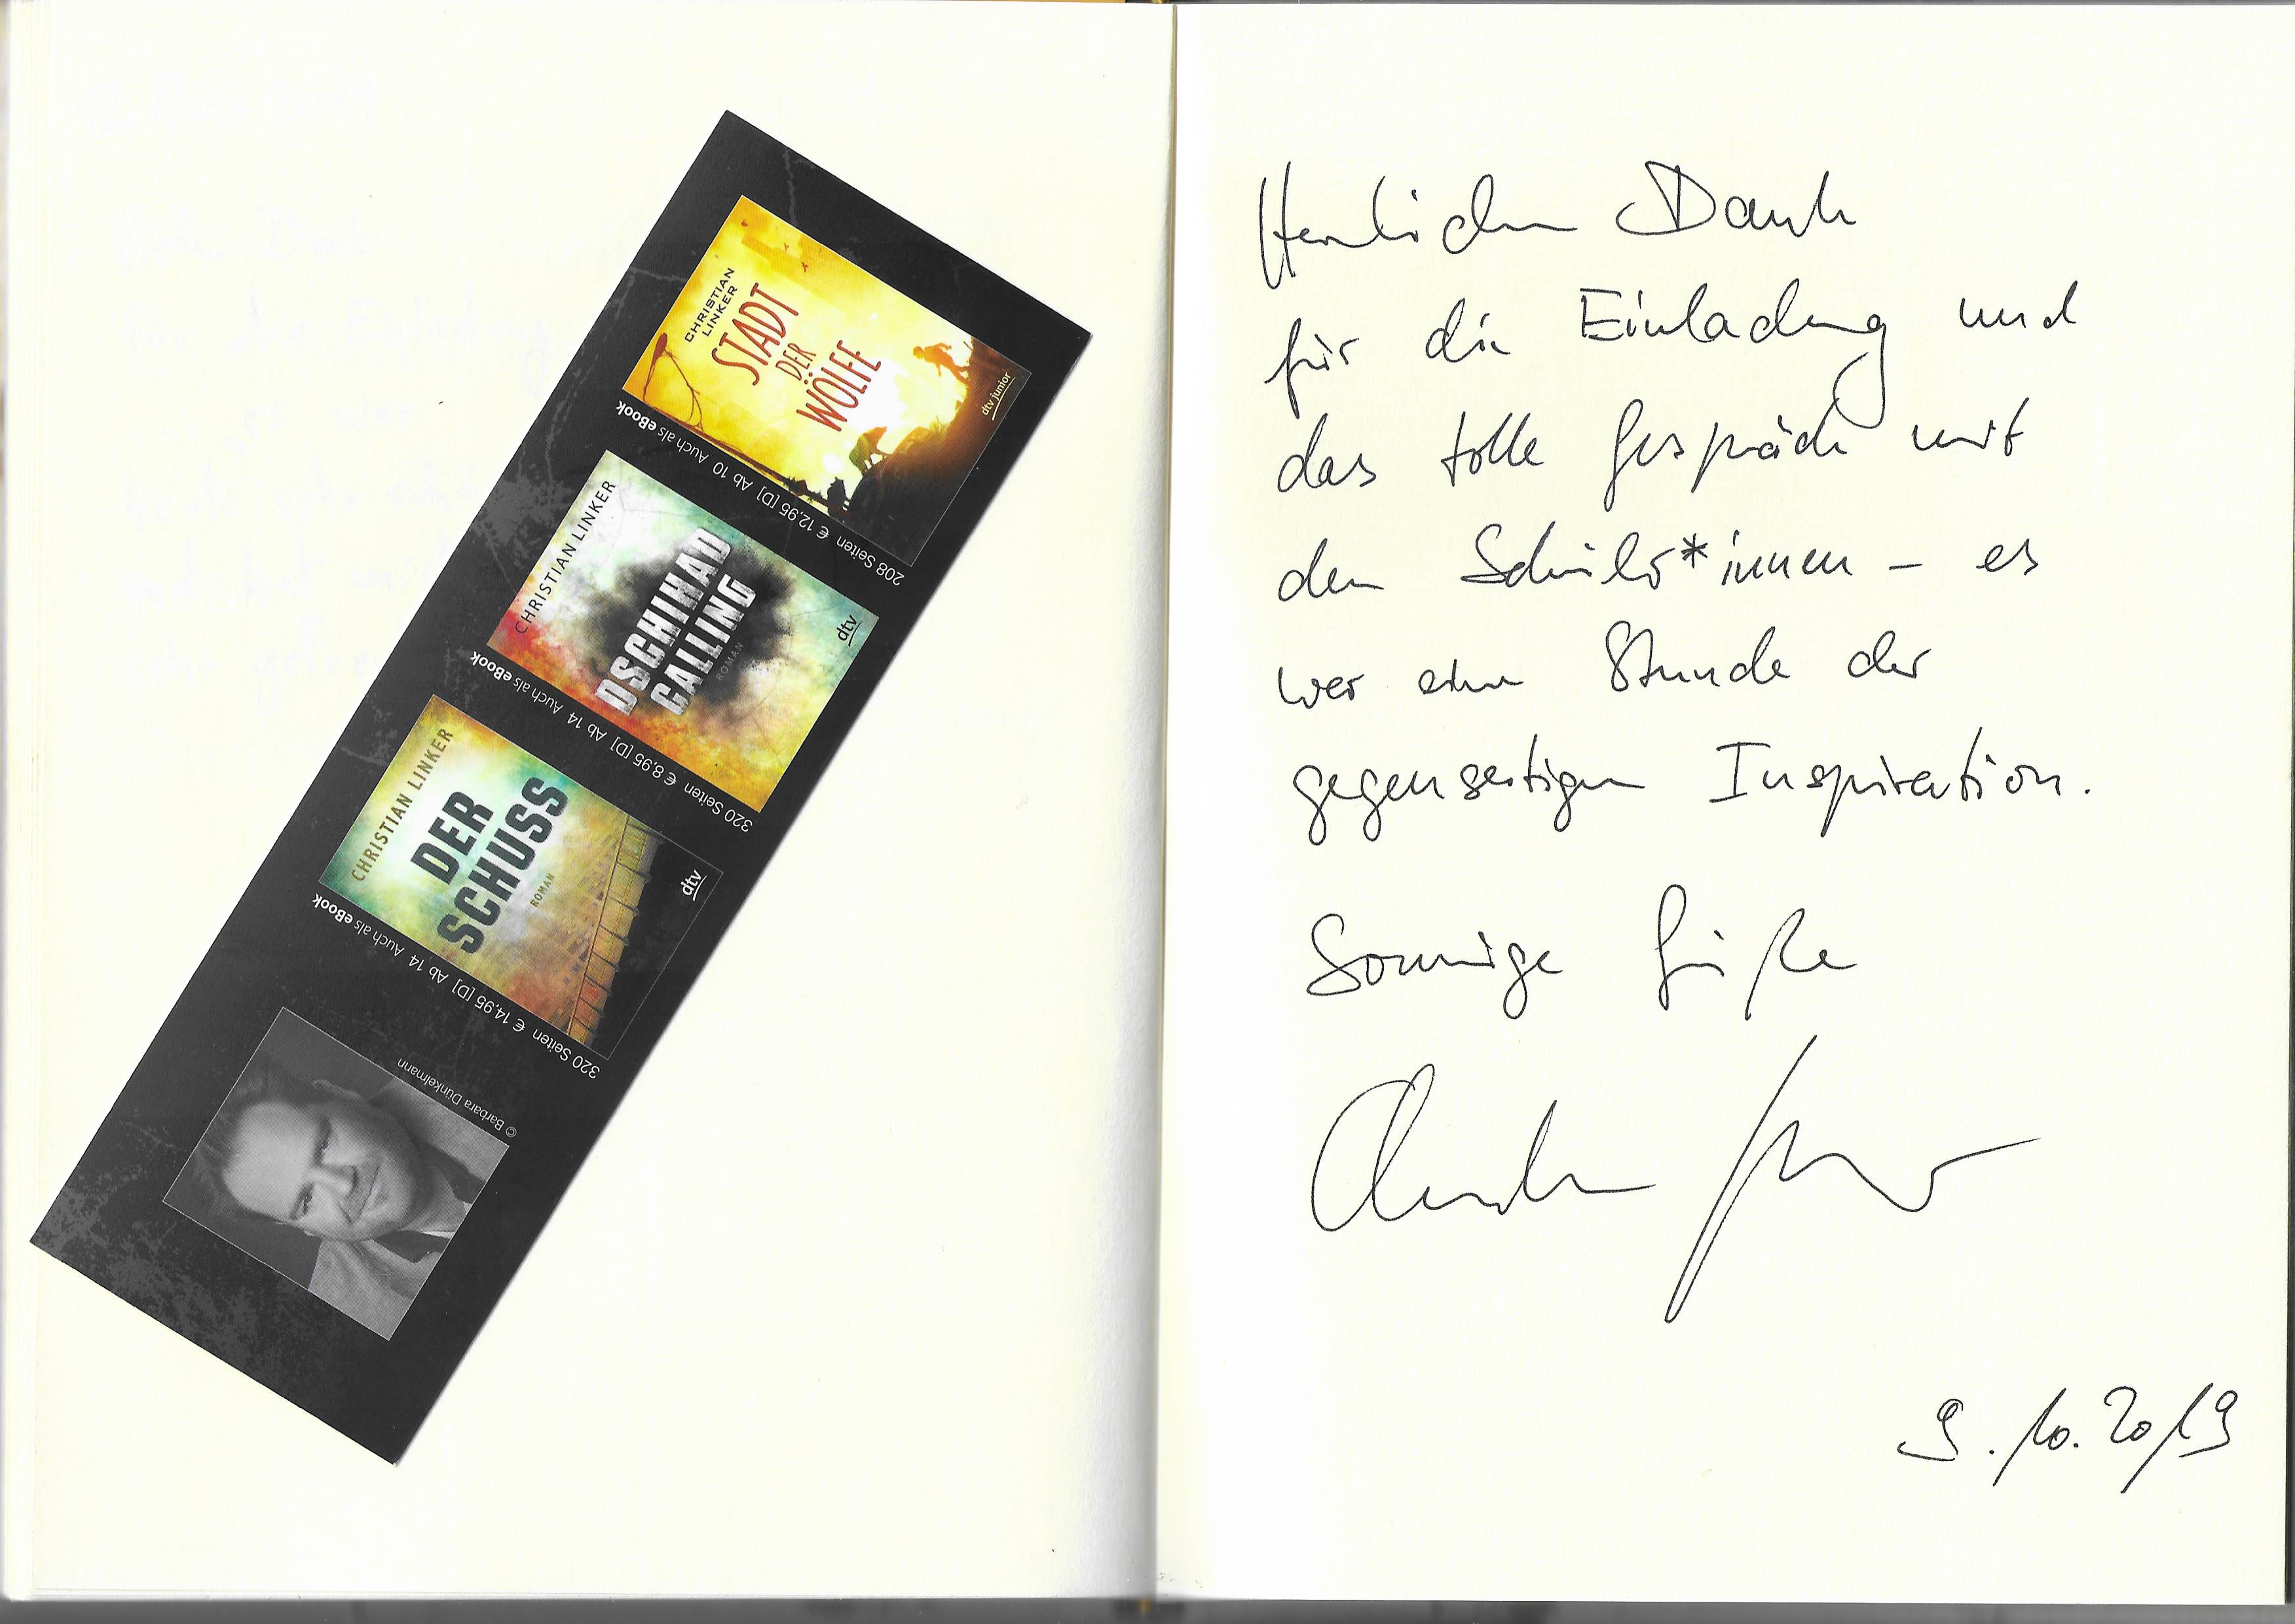 CHRISTIAN
LINKER
STADT
DER
WÖLFE
dtv junior
208 Seiten € 12,95 [D] Ab 10 Auch als eBook
CHRISTIAN LINKER
DSCHIHAD
CALLING
ROMAN
dtv
320 Seiten € 8,95 [D] Ab 14 Auch als eBook
CHRISTIAN LINKER
DER
SCHUSS
ROMAN
dtv
320 Seiten € 14,95 [D] Ab 14 Auch als eBook
© Barbara Dünkelmann
Herzlichen Dank
für die Einladung und
das tolle Gespräch mit
den Schüler*innen – es
war eine Stunde der
gegenseitigen Inspiration.
Sonnige Grüße
Christian Linker
9.10.2019